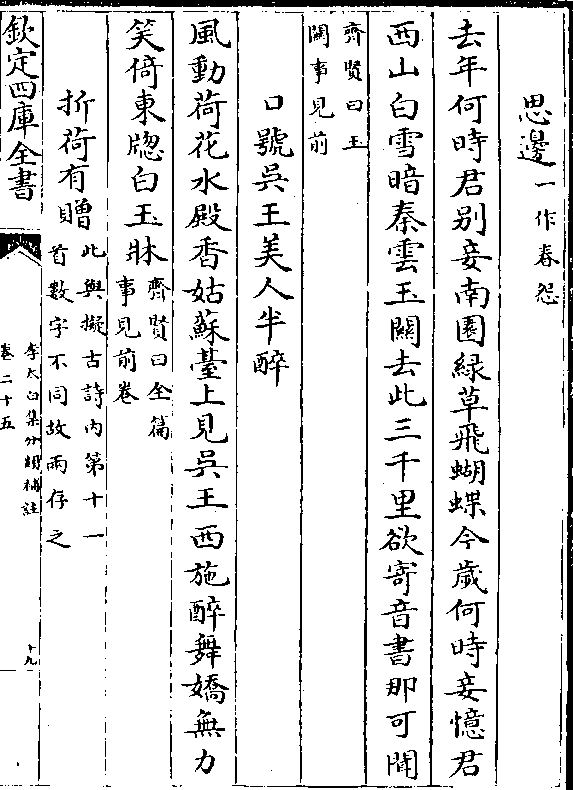 思邊一作春怨
去年何時君别妾南園緑草飛蝴蝶今歳何時妾憶君
西山白雪暗秦雲玉闗去此三千里欲寄音書那可聞
齊賢曰玉
闗事見前
口號吳王美人半醉
風動荷花水殿香姑蘇臺上見吳王西施醉舞嬌無力
笑倚東牕白玉牀齊賢曰全篇
事見前卷
折荷有贈此與擬古詩内第十一
首數字不同故兩存之
欽定四庫全書
李太白集分類補註
卷二十五
十九